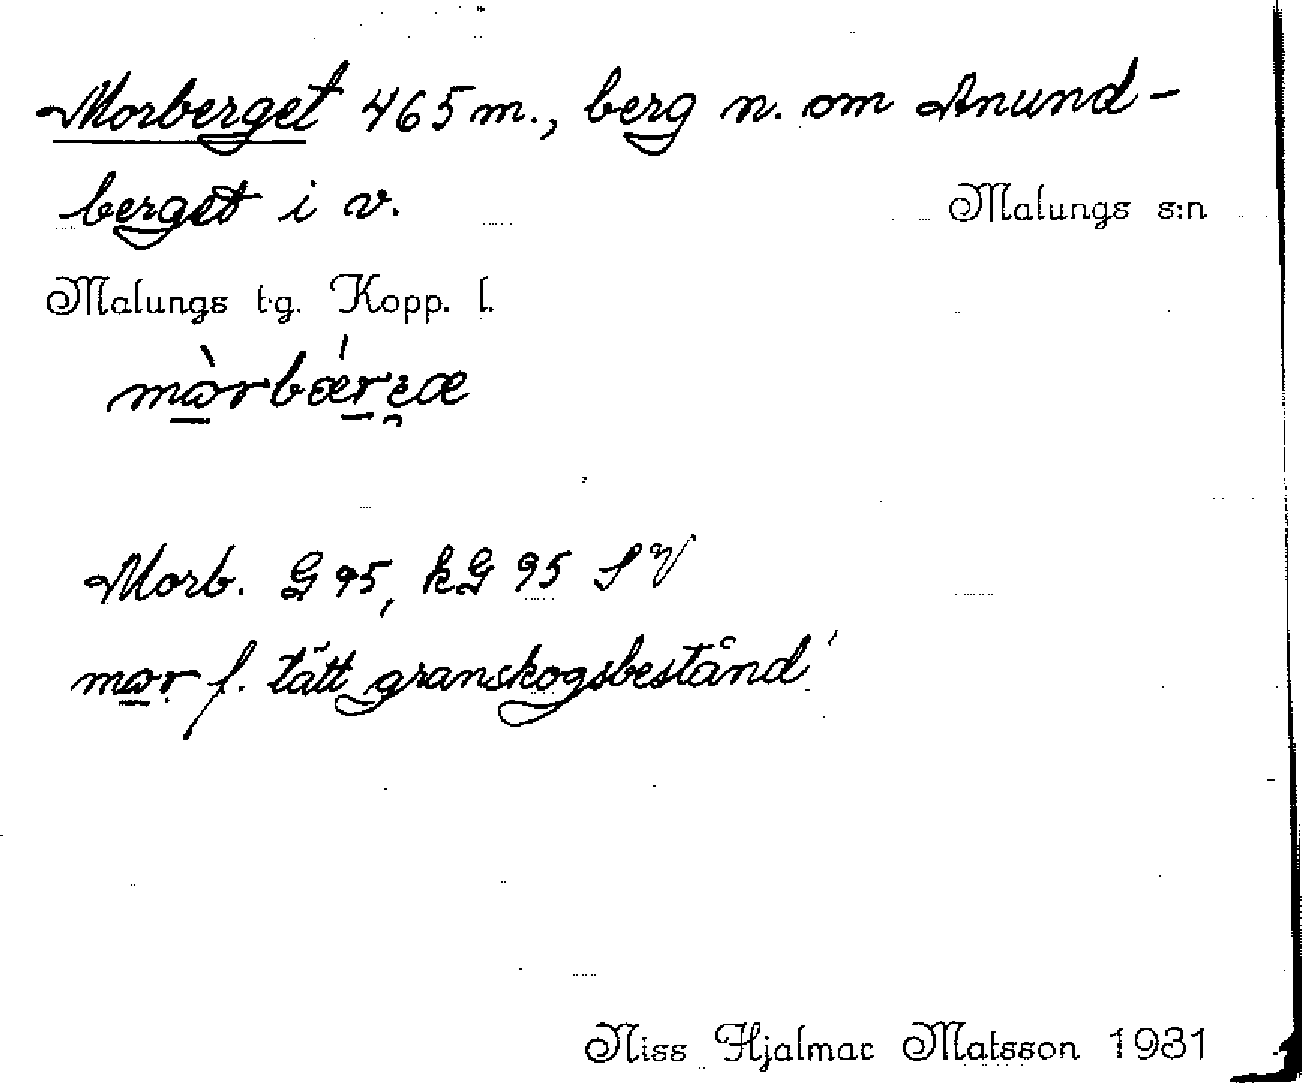 Morberget 465 m., berg n. om Anund-
berget i v.
Malungs s:n
Malungs tg. Kopp. l.
mòrbǽrɛæ
Morb. G 95, kG 95 S V
mor f. 'tätt granskogsbestånd'
Niss Hjalmar Matsson 1931